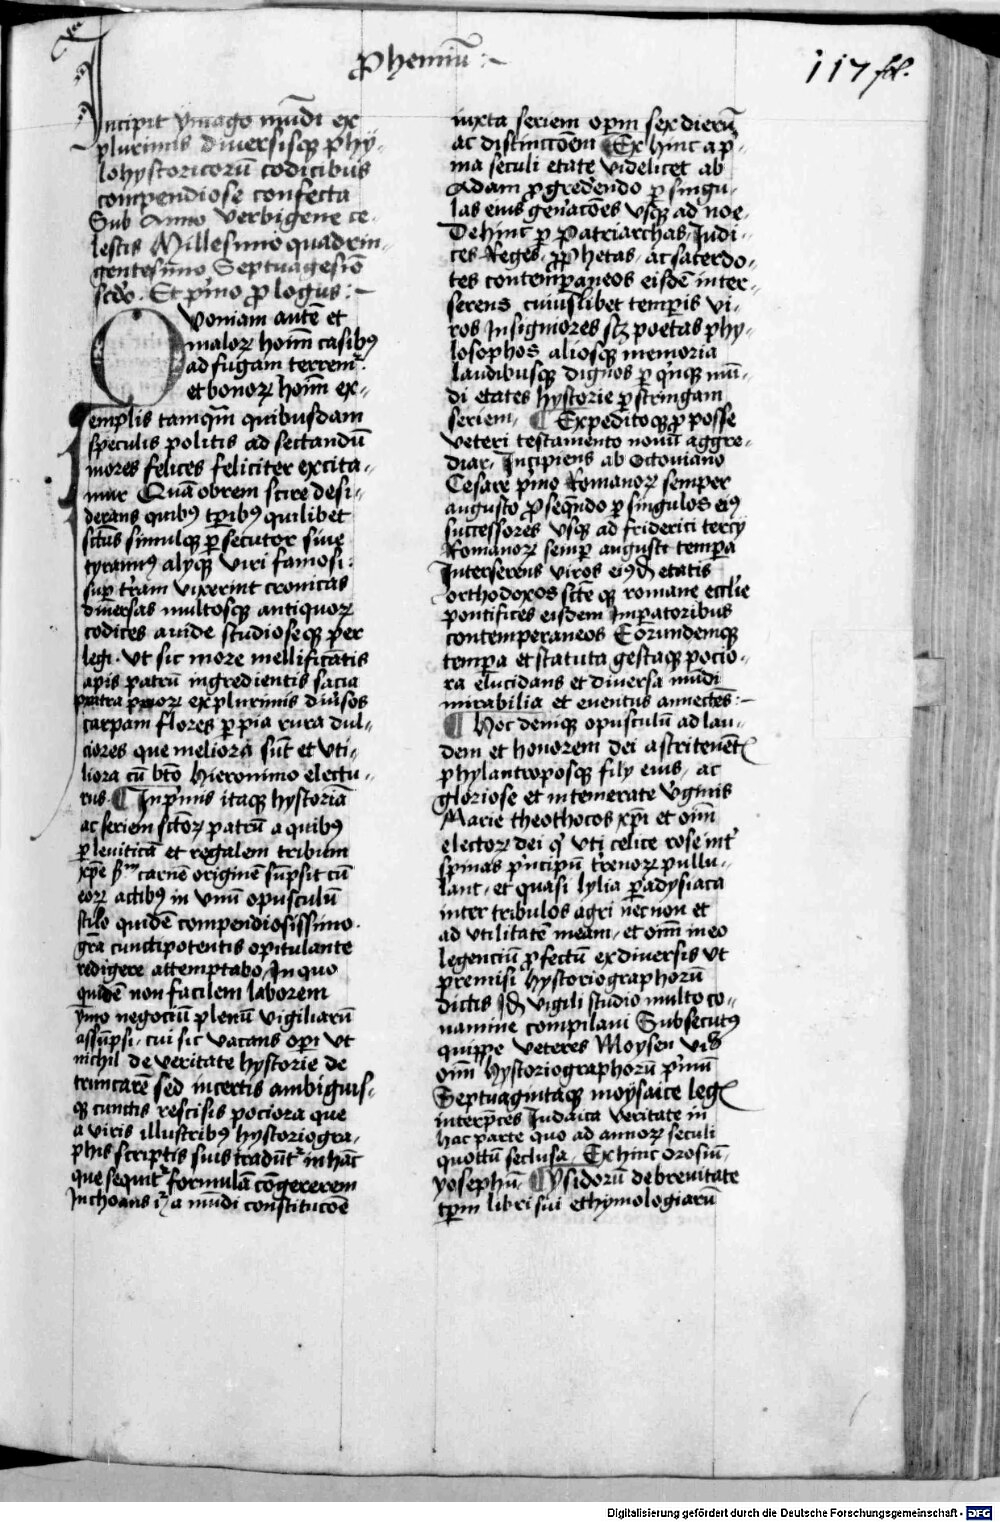 Prhemiũ :~
117 fol.
Incipit ymago mũdi ex
plurimis diversisqꝫ phy-
lohystoricorũ codicibus
conpendiose confecta
Sub Anno verbigene ce-
lestis Millesimo quadrin-
gentesimo Septuagesiõ
scd̃o. Et p̃mo prologus :~
Quoniam autẽ et
maloꝝ hoĩm casibꝰ
ad fugam terremr̃.
et bonoꝝ hoĩm ex-
emplis tamqm̃ quibusdam
speculis politis ad sectandũ
mores felices feliciter excita-
mur Quãobrem scire desi-
derans quibꝰ tꝑibꝰ quilibet
sctũs simulqꝫ ꝑsecutor siue
tyrannꝰ alyqꝫ viri famosi
suꝑ tr̃am vixerint cronicas
diuersas multosqꝫ antiquoꝝ
codices auide studioseqꝫ ꝑer
legi. Vt sic more mellificãtis
apis patrũ ingredientis sacra
ex plurimis diu̾sos
carpam flores ꝑ pia rura dul-
ciores que meliora sũt et vti-
liora cũ bt̃o Hieronimo electu-
rus. ¶ Inp̃mis itaqꝫ hystoriã
ac seriem sctõꝝ patrũ a quibꝰ
ꝑ leuiticã et regalem tribum
xp̃c carnẽ originẽ sũpsit cũ
eoꝝ actibꝰ in vnũ opusculũ
stilo quidẽ compendiosissimo
grã cunctipotentis opitulante
redigere attemptabo, In quo
quidẽ non facilem laborem
ymo negociũ plenũ vigiliarũ
assũpsi, cui sic vacans oꝑi vt
nichil de veritate hystorie de
truncarẽ sed incertis ambiguis-
qꝫ cunctis rescisis pociora que
a viris illustribꝰ hystoriogra-
phis scriptis suis tradũtr̃ in hãc
que sequitr̃ formulã cõgererem
Inchoans a mũdi constitucõe
iuxta seriem oꝑm sex dierũ
ac distinctõem ¶ Ex hinc a p̃-
ma seculi etate videlicet ab
Adam ꝓgrediendo ꝑ singu-
las eius gen̾acões vsqꝫ ad noe.
Dehinc ꝑ Patriarchas, Iudi-
ces Reges, ꝓphetas, ac sacerdo-
tes contemꝑaneos eisdẽ inter-
serens cuiuslibet temꝑis vi-
ros Insigniores scꝫ poetas phy-
losophos aliosqꝫ memoria
laudibusqꝫ dignos ꝑ q̃nqꝫ mũ-
di etates hystorie ꝑstringam
seriem, ¶ Expeditoqꝫ ꝓ posse
veteri testamento nouũ aggre-
diar, Incipiens ab Octouiano
Cesare p̃mo Romanoꝝ semper
augusto ꝓseqũdo ꝑ singulos eiꝰ
successores vsqꝫ ad friderici tercy
Romanoꝝ semꝑ augusti temꝑa
Interserens viros eiꝰdẽ etatis
orthodoxos sctẽ qꝫ romane eccl̾ie
pontifices eisdem Imꝑatoribus
contemperaneos Eorundemqꝫ
temꝑa et statuta gestaqꝫ pocio-
ra elucidans et diuersa mũdi
mirabilia et euentus annectẽs :~
¶ Hoc deniqꝫ opusculũ ad lau-
dem et honorem dei astriteneñt
phylantroposqꝫ fily eius, ac
gloriose et intemerate v̾ginis
Marie theothocos xp̃i et oĩm
electoꝝ dei q̃ vti celice rose int̾
spinas p̃ncipũ t̾renoꝝ pullu-
lant, et quasi lylia ꝑadysiaca
inter tribulos agri necnon et
ad vtilitatẽ meam, et oĩm in eo
legenciũ ꝓfectũ ex diuersis vt
premisi Hystoriographorũ
dictis vigili studio multo co-
namine compilaui Subsecutꝰ
quippe veteres Moysen
oĩm Hystoriographorũ p̃mũ
Septuagintaqꝫ moysaice leg̃
interp̃tes Iudaica veritate in
hac parte quo ad annoꝝ seculi
quottũ seclusa, Ex hinc Orosiũ,
yosephũ, ¶ ysidorũ de breuitate
tꝑm libri sui ethymologiarũ
Digitalisierung gefördert durch die Deutsche Forschungsgemeinschaft - DFG